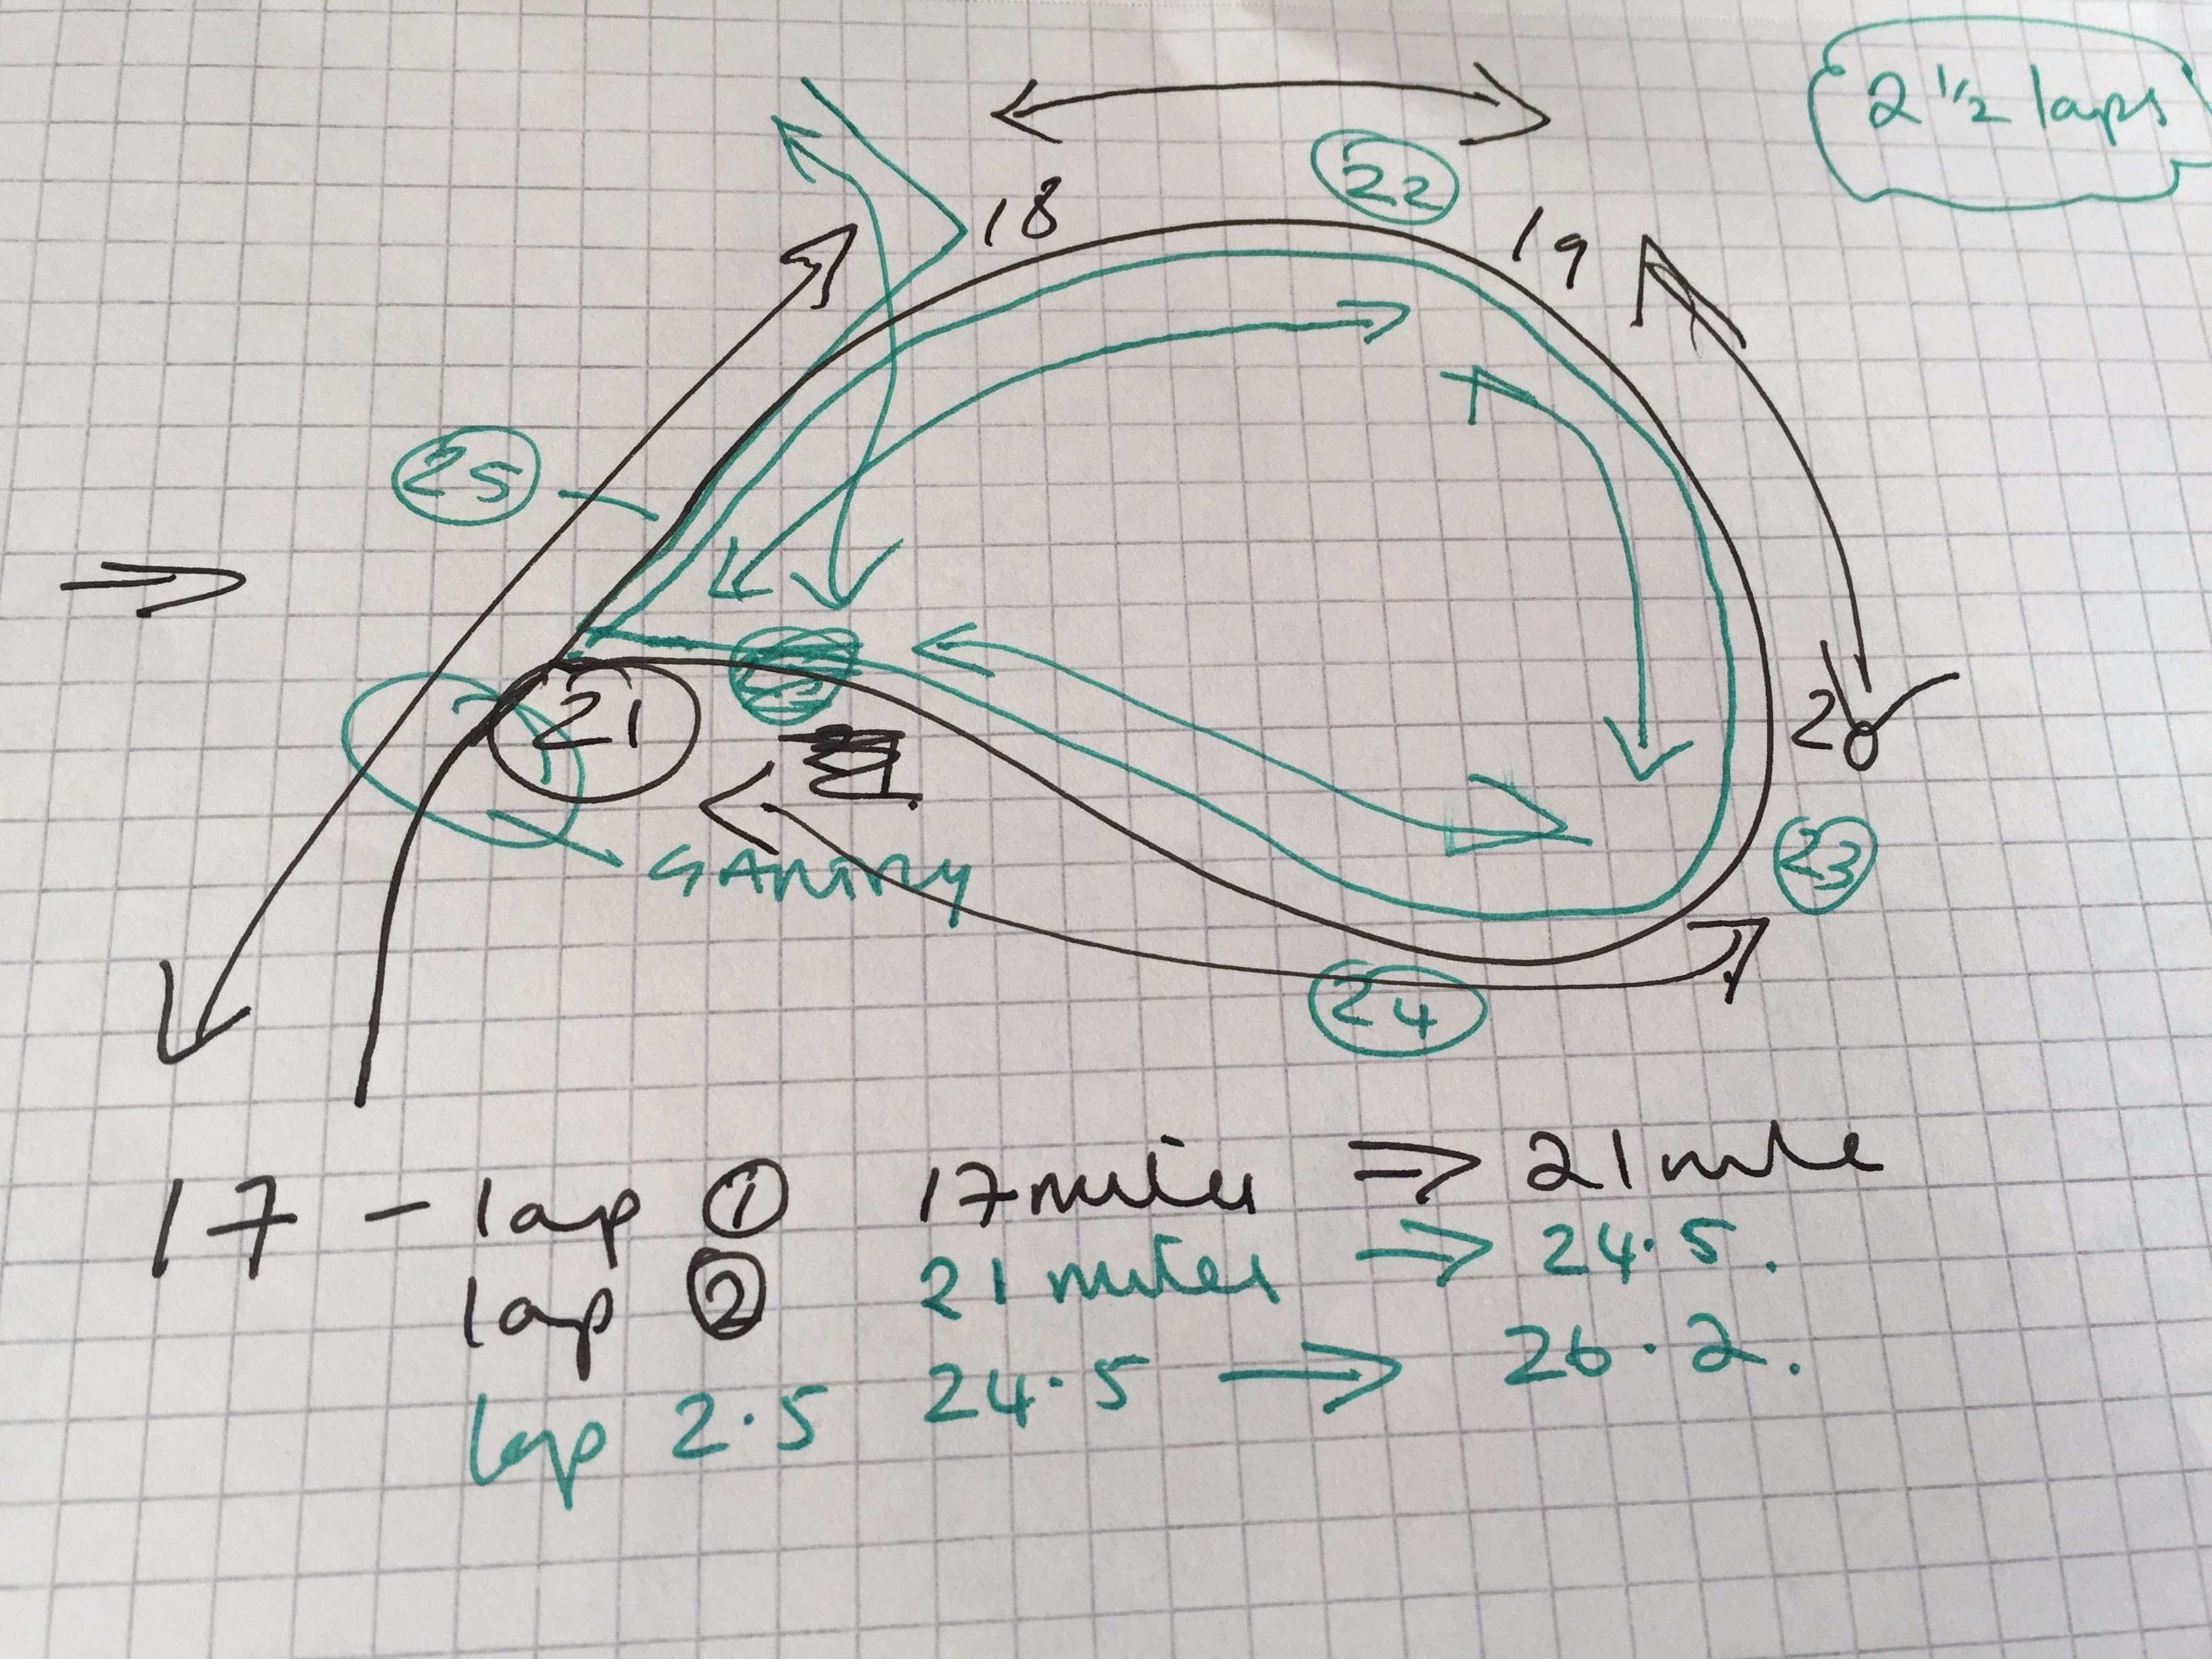 2 1/2 laps
22
18
19
25
21
20
GANTRY
23
24
17 - lap 1 17 miles ⇒ 21 mile
lap 2 21 miles ⇒ 24.5.
lap 2.5 24.5 → 26.2.